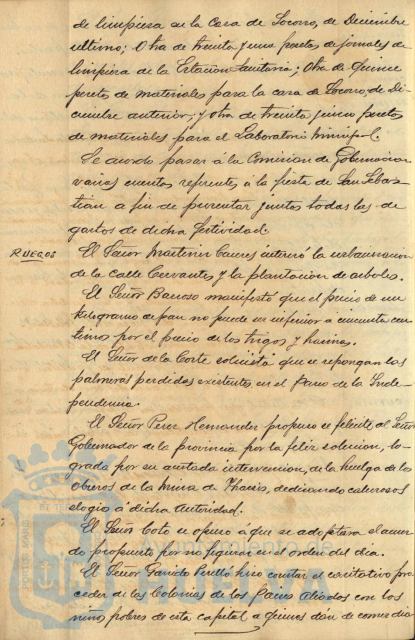 de limpiesa en la Casa de Socorro, de Diciembre
ultimo; Otra de treinta y una pesetas de jornales de
limpieza de la Estacion Sanitaria; Otra de quince
pesetas de materiales para la casa de Socorro, de Di-
ciembre anterior, y otra de treinta y cinco pesetas
de materiales para el Laboratorio Municipal.
Se acordo pasar á la Comision de Gobernacion
varias cuentas referentes á la fiesta de San Sebas-
tian á fin de presentar juntas todas las de
gastos de dicha festividad.
RUEGOS
El Señor Martinin Cañes interesó la urbanizacion
de la calle Cervantes y la plantacion de arboles.
El Señor Barroso manifestó que el precio de un
kilogramo de pan no puede ser inferior á cincuenta cen-
timos por el precio de los trigos y harinas.
El Señor de la Corte solicitá que se repongan las
palmeras perdidas existentes en el Paseo de la Inde-
pendencia.
El Señor Perez Hernandez propuso se felicite al Señor
Gobernador de la provincia por la feliz solucion, lo-
grada por su acertada intervencion, de la huelga de los
obreros de la mina de Tharsis, dedicando calurosos
elogio á dicha autoridad.
El Señor Coto se opuso á que se adoptara el acuer-
do propuesto por no figurar en el orden del dia.
El Señor Garrido Perelló hizo constar el caritativo pro-
ceder de las Colonias de los Paises Aliados con los
niños pobres de esta capital á quienes dan de comer dia-